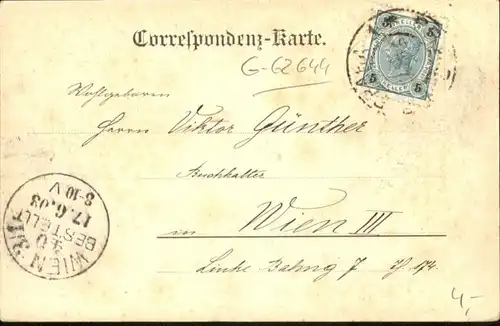 Correspondenz-Karte.
G-62644
Wohlgeboren
Herrn Viktor Günther
Buchhalter
in Wien III
Linke Bahng 7
5 HELLER 5
5 5
WIEN 3/1
BESTELLT
17.6.03
8-10 V
4,-